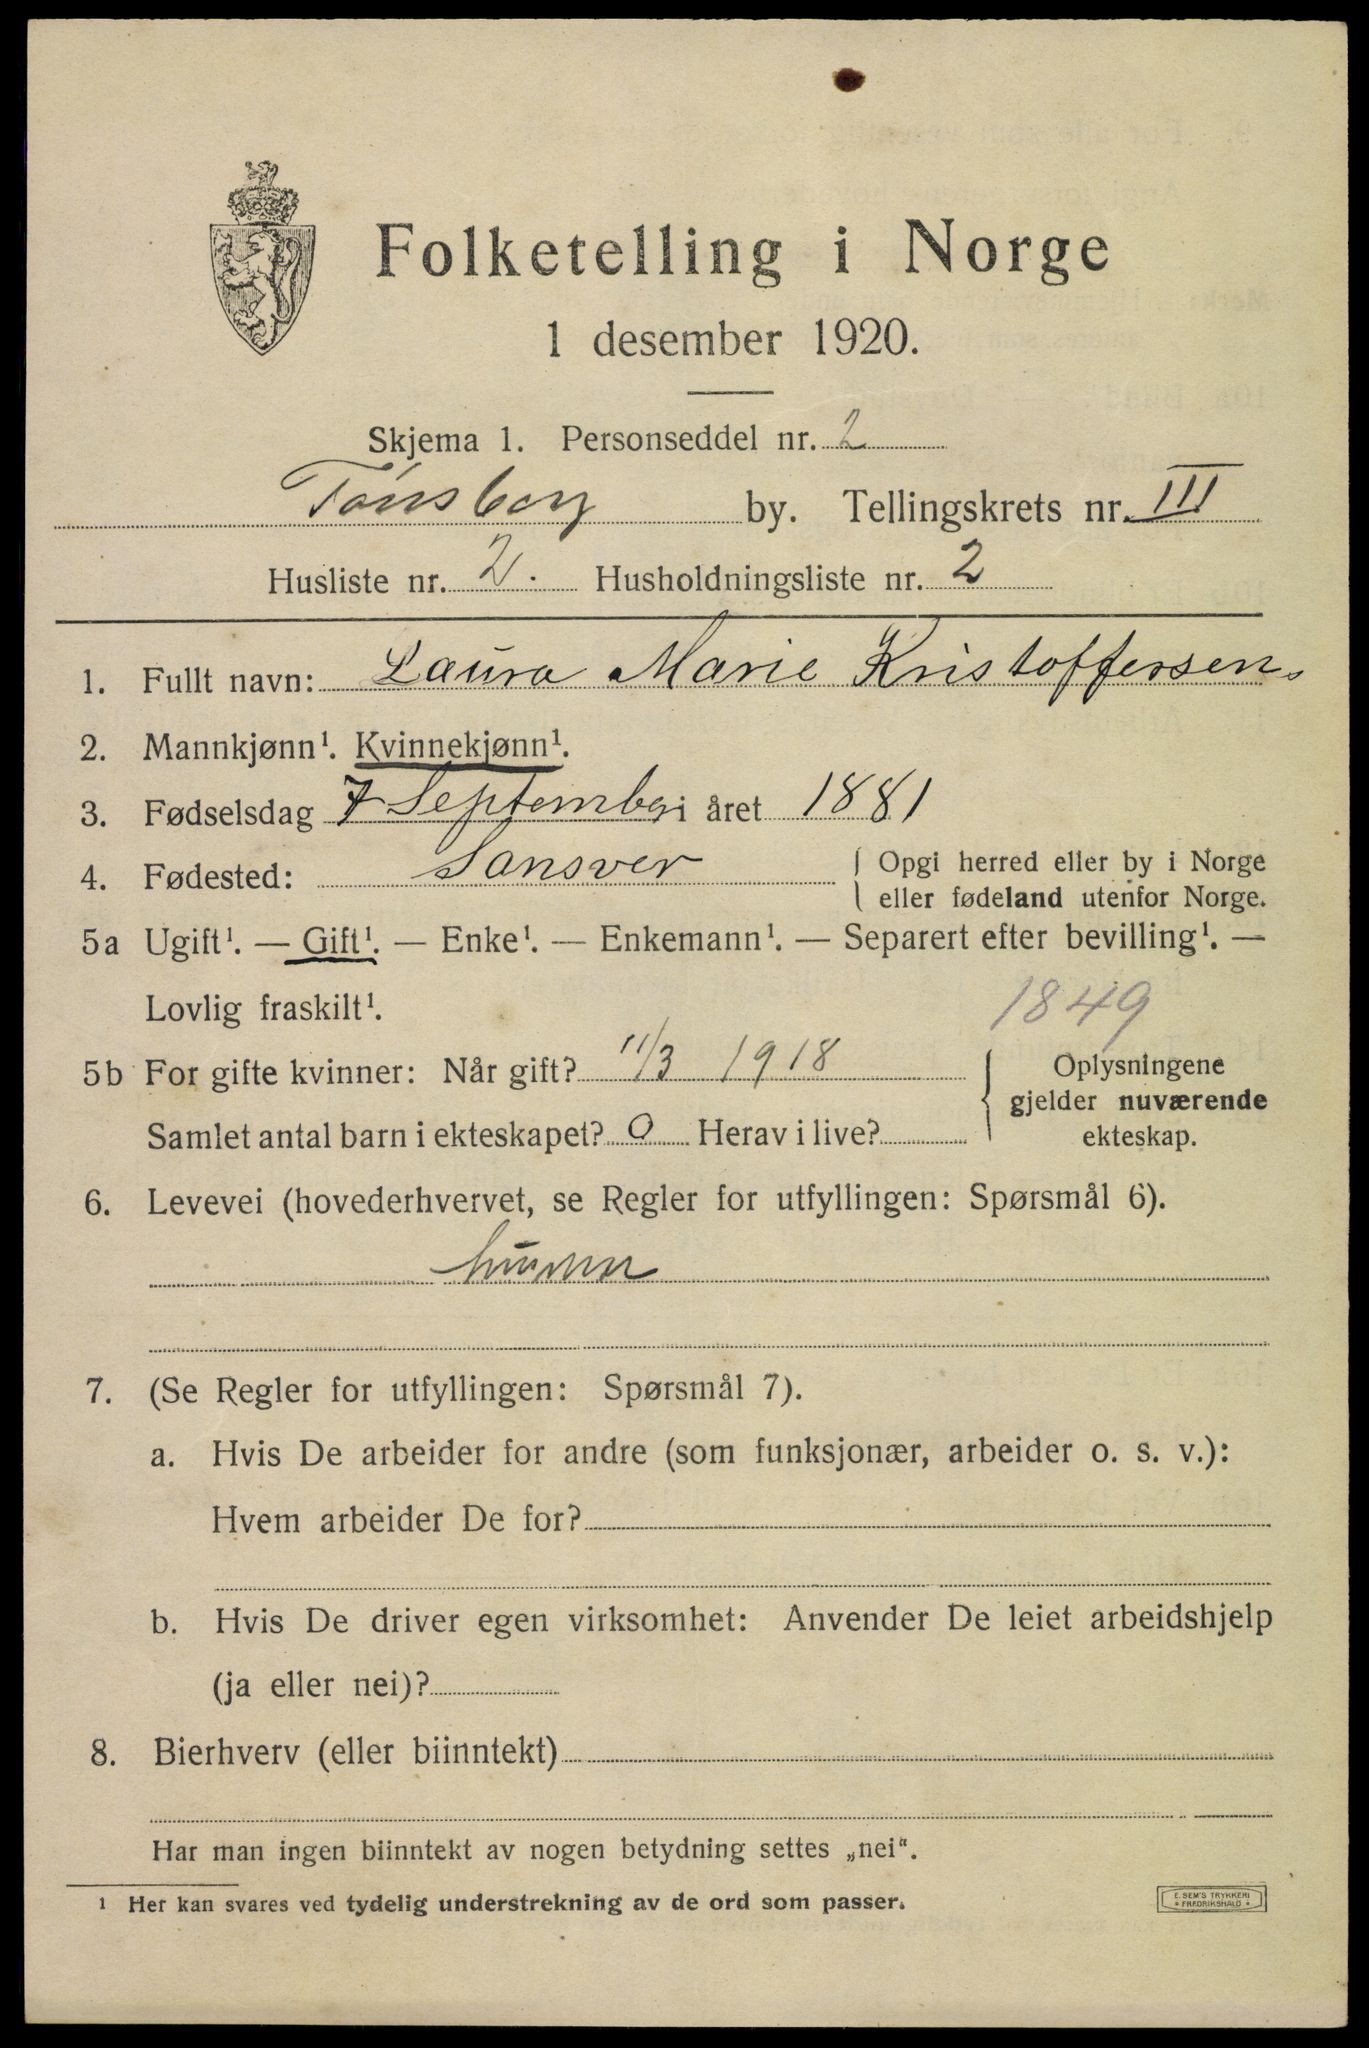 Folketelling i Norge
1 desember 1920.
Skjema 1. Personseddel nr. 2
Tønsberg by. Tellingskrets nr. III
Husliste nr. 2. Husholdningsliste nr. 2
1. Fullt navn: Laura Marie Kristoffersen.
2. Mannkjønn¹. Kvinnekjønn¹.
3. Fødselsdag 7 September i året 1881
4. Fødested: Sansver { Opgi herred eller by i Norge
eller fødeland utenfor Norge.
5a Ugift¹. — Gift¹. — Enke¹. — Enkemann¹. — Separert efter bevilling¹. —
Lovlig fraskilt¹.
1849
5b For gifte kvinner: Når gift? 11/3 1918
Samlet antal barn i ekteskapet? 0 Herav i live?
{ Oplysningene
gjelder nuværende
ekteskap.
6. Levevei (hovederhvervet, se Regler for utfyllingen: Spørsmål 6).
7. (Se Regler for utfyllingen: Spørsmål 7).
a. Hvis De arbeider for andre (som funksjonær, arbeider o. s. v.):
Hvem arbeider De for?
b. Hvis De driver egen virksomhet: Anvender De leiet arbeidshjelp
(ja eller nei)?
8. Bierhverv (eller biinntekt)
Har man ingen biinntekt av nogen betydning settes „nei“.
¹ Her kan svares ved tydelig understrekning av de ord som passer.
E. SEM'S TRYKKERI
* FREDRIKSHALD *